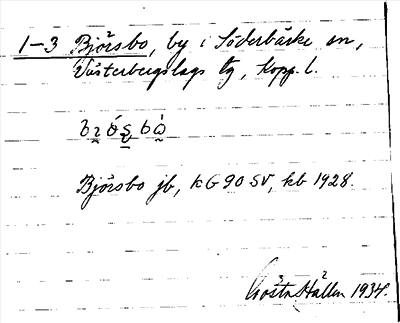 1-3 Björsbo, by i Söderbärke sn,
Västerbergslags tg, Kopp. l.
Björsbo jb, kG 90 SV, kb 1928.
Gösta Hållen 1934.